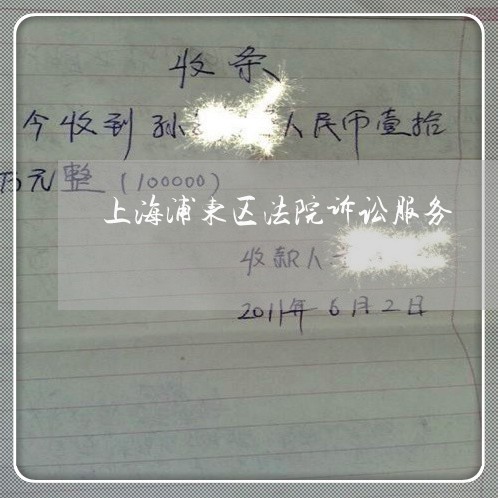 收条
今收到孙 人民币壹拾
万元整(100000)
上海浦东区法院诉讼服务
收款人
2011年6月2日